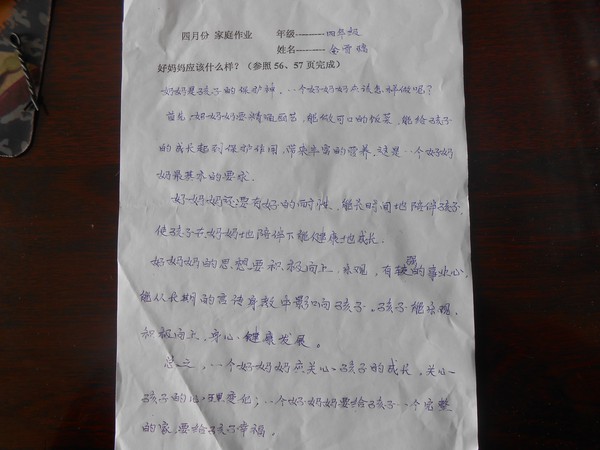 四月份 家庭作业 年级----------四年级
姓名----------金晋鹏
好妈妈应该什么样？（参照 56、57 页完成）
妈妈是孩子的保护神，一个好妈妈应该怎样做呢？
首先，好妈妈要精通厨艺，能做可口的饭菜，能给孩子
的成长起到保护作用，带来丰富的营养，这是一个好妈
妈最基本的要求。
好妈妈还要有好的耐性，能长时间地陪伴孩子，
使孩子在妈妈地陪伴下能健康地成长。
好妈妈的思想要积极向上，乐观，有较强的事业心，
能从长期的言传身教中影响孩子。孩子能
积极向上，身心健康发展。
总之，一个好妈妈应关心孩子的成长，关心
孩子的心理变化；一个好妈妈要给孩子一个完整
的家，要给孩子幸福。